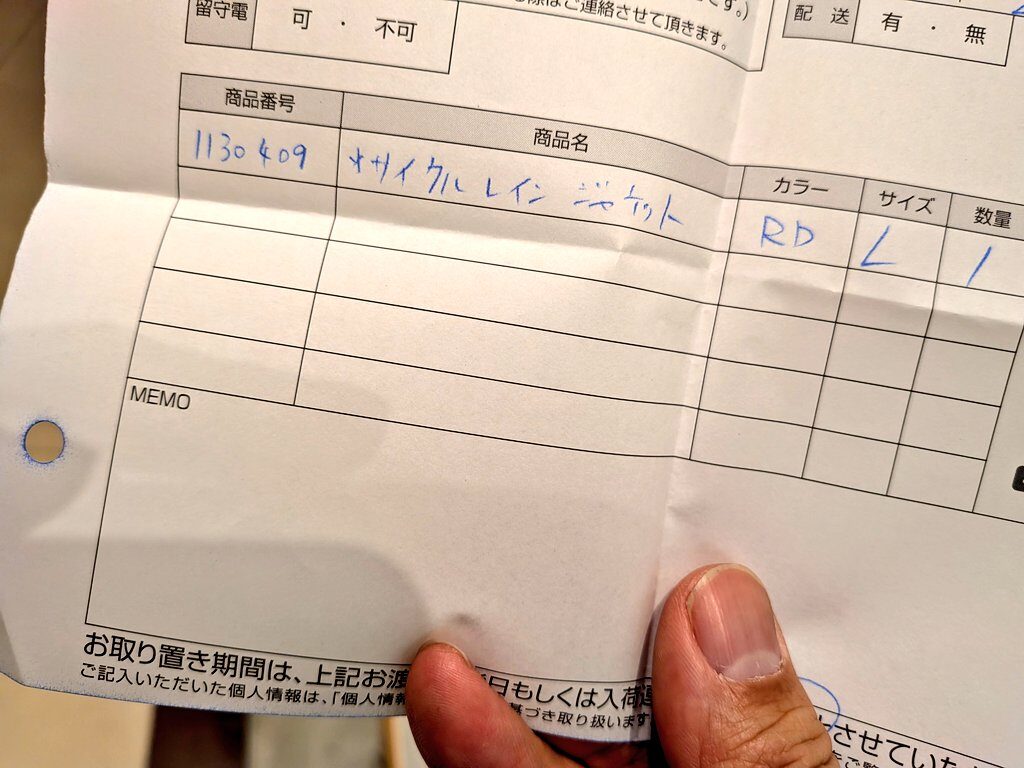 です。)
際はご連絡させて頂きます。
留守電 可 ・ 不可
配 送 有 ・ 無
商品番号 商品名 カラー サイズ 数量
1130409 サイクル レイン ジャケット RD L 1
MEMO
お取り置き期間は、上記お渡 日もしくは入荷連 させていた
ご記入いただいた個人情報は、「個人情報 基づき取り扱います